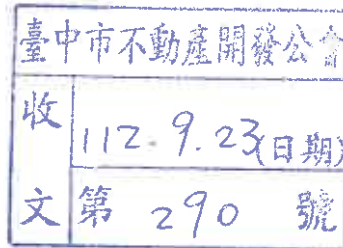 臺中市不動產開發公會
收文
112.9.23(日期)
第 290 號